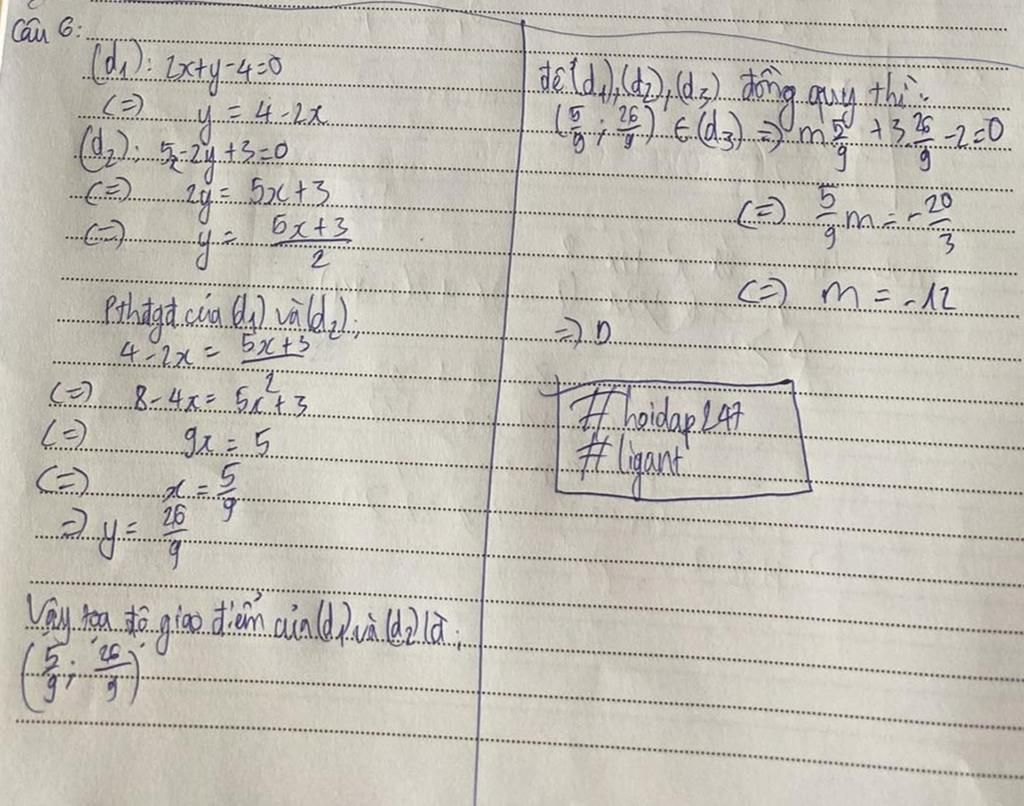 Câu 6:
(d₁): 2x+y-4=0
(=) y = 4-2x
(d₂): 5x-2y+3=0
(=) 2y = 5x+3
(=) y = (5x+3)/2
Pthđgđ của (d₁) và (d₂):
4-2x = (5x+3)/2
(=) 8-4x = 5x+3
(=) 9x = 5
(=) x = 5/9
=) y = 26/9
Vậy tọa độ giao điểm của (d₁) và (d₂) là:
(5/9; 26/9)
để (d₁),(d₂),(d₃) đồng quy thì:
(5/9; 26/9) ∈ (d₃) =) m 5/9 + 3.26/9 -2=0
(=) 5/9 m = -20/3
(=) m = -12
=) D
#hoidap247
#ligant